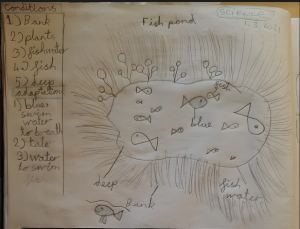 Conditions
1) Bank
2) plants
3) fishwater
4) fish
5) deep
adaptations
1) blue
swim
water
to breath
2) tale
3) water
to swim
Fish pond
SCIENCE
fish
blue
deep
Bank
fish
water